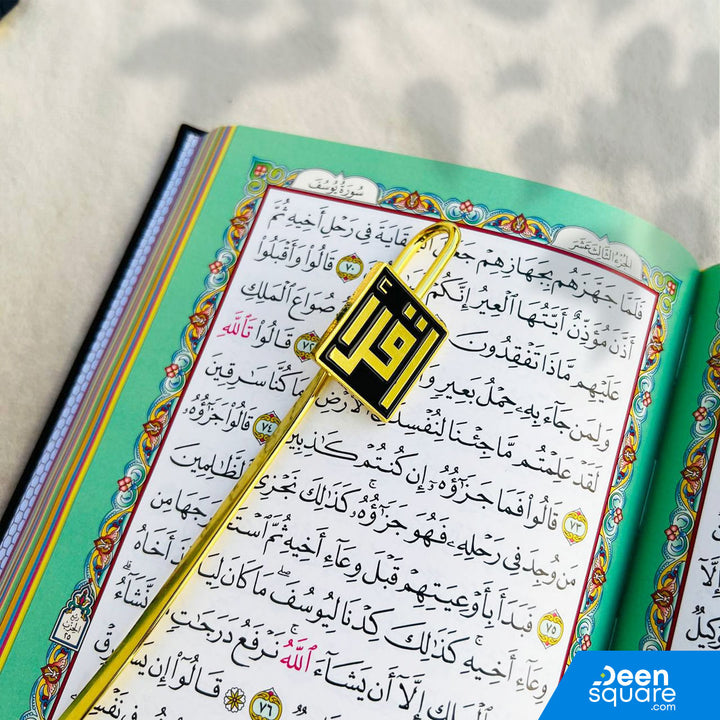 سُورَةُ يُوسُفَ
الجُزْءُ الثَّالِثَ عَشَرَ
فَلَمَّا جَهَّزَهُم بِجَهَازِهِمْ جَعَلَ ٱلسِّقَايَةَ فِى رَحْلِ أَخِيهِ ثُمَّ
أَذَّنَ مُؤَذِّنٌ أَيَّتُهَا ٱلْعِيرُ إِنَّكُمْ ٧٠ قَالُوا۟ وَأَقْبَلُوا۟
عَلَيْهِم مَّاذَا تَفْقِدُونَ صُوَاعَ ٱلْمَلِكِ
وَلِمَن جَآءَ بِهِۦ حِمْلُ بَعِيرٍ ٧٢ قَالُوا۟ تَٱللَّهِ
لَقَدْ عَلِمْتُم مَّا جِئْنَا لِنُفْسِدَ ٱلْأَرْضِ وَمَا كُنَّا سَـٰرِقِينَ
٧٣ قَالُوا۟ فَمَا جَزَٰٓؤُهُۥٓ إِن كُنتُمْ كَـٰذِبِينَ ٧٤ قَالُوا۟ جَزَٰٓؤُهُۥ
مَن وُجِدَ فِى رَحْلِهِۦ فَهُوَ جَزَٰٓؤُهُۥ ۚ كَذَٰلِكَ نَجْزِى ٱلظَّـٰلِمِينَ
٧٥ فَبَدَأَ بِأَوْعِيَتِهِمْ قَبْلَ وِعَآءِ أَخِيهِ ثُمَّ ٱسْتَخْرَجَهَا مِن
وِعَآءِ أَخِيهِ ۚ كَذَٰلِكَ كِدْنَا لِيُوسُفَ ۖ مَا كَانَ لِيَأْخُذَ أَخَاهُ
ٱلْمَلِكِ إِلَّآ أَن يَشَآءَ ٱللَّهُ ۚ نَرْفَعُ دَرَجَـٰتٍ مَّن نَّشَآءُ ۗ
٧٦ قَالُوٓا۟ إِن يَسْرِقْ
فِى نَفْسِهِ
اقرأ
Deen
square
.com